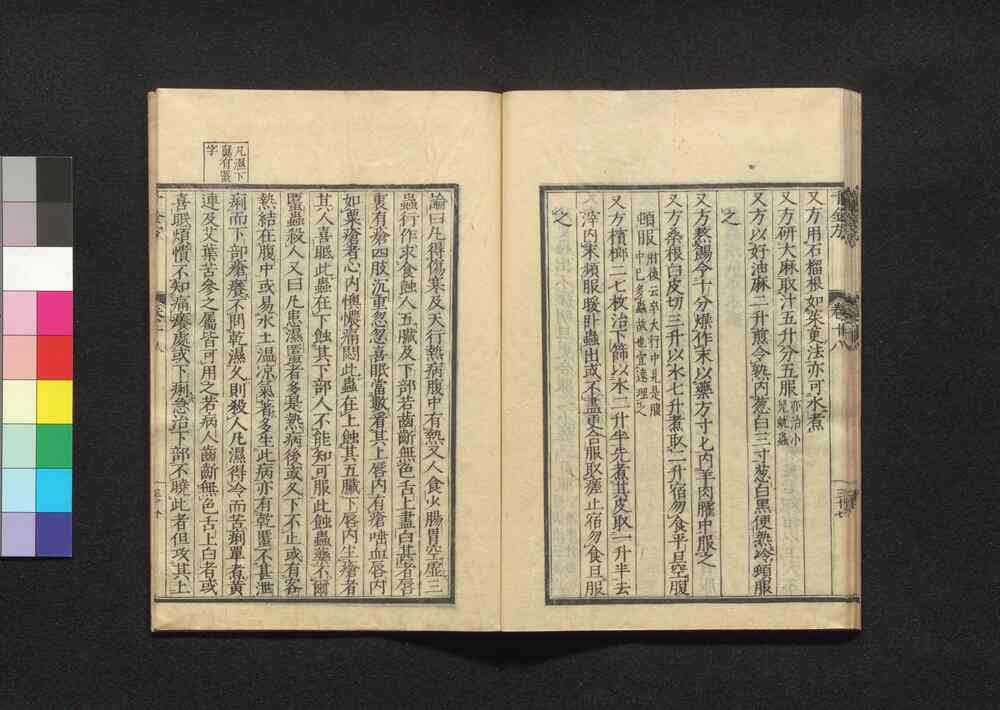 又方用石榴根如茱萸法亦可水煮
又方研大麻取汁五升分五服亦治小
兒蚘蟲
又方以好油麻二升煎令熟内葱白三寸葱白黑便熟冷頻服
之
又方熬餳令十分燥作末以藥方寸匕内羊肉臛中服之
又方桑根白皮切三升以水七升煮取二升宿勿食平旦空腹
頓服肘後云卒大行中見是腹
中已多蟲故也宜速理之
又方檳榔二七枚治下篩以水二升半先煮其皮取一升半去
滓内末頻服暖卧蟲出或不盡更合服取瘥止宿勿食旦服
之
千金方
卷十八
凡濕下
䘌有䘌
字
論曰凡得傷寒及天行熱病腹中有熱又人食少腸胃空虛三
蟲行作求食蝕人五臟及下部若齒斷無色舌上盡白甚者唇
裏有瘡四肢沉重忽忽喜眠當數看其上唇内有瘡唾血唇内
如粟瘡者心内懊憹痛悶此蟲在上蝕其五臟下唇内生瘡者
其人喜眠此蟲在下蝕其下部人不能知可服此蝕蟲藥不爾
䘌蟲殺人又曰凡患濕䘌者多是熱病後或久下不止或有客
熱結在腹中或易水土温凉氣著多生此病亦有乾䘌不甚泄
痢而下部瘡癢不問乾濕久則殺人凡濕得冷而苦痢單煮黄
連及艾葉苦參之屬皆可用之若病人齒斷無色舌上白者或
喜眠煩憒不知痛癢處或下痢急治下部不曉此者但攻其上